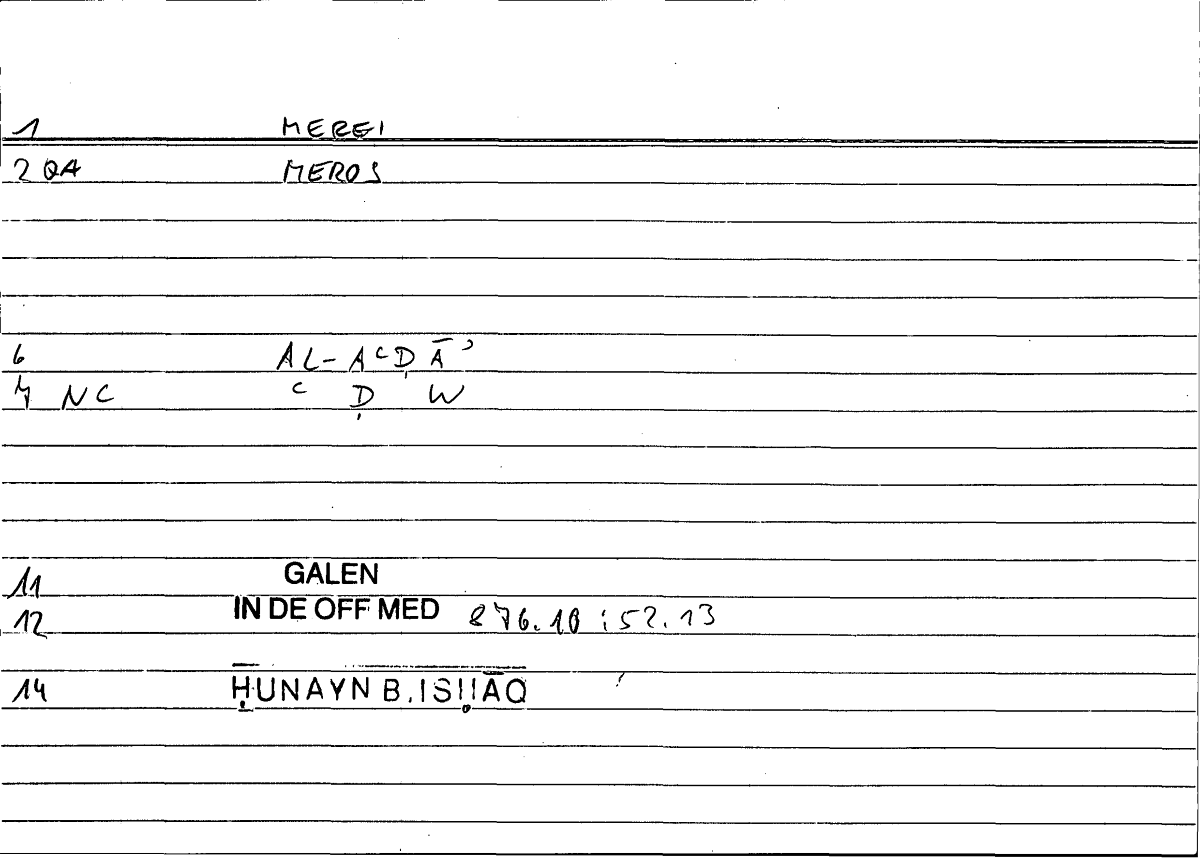 1 MEREI
2 QA MEROS
6 AL-AʿḌĀʾ
7 NC ʿ Ḍ W
11 GALEN
12 IN DE OFF MED 876.10 : 52.13
14 ḤUNAYN B. ISḤĀQ